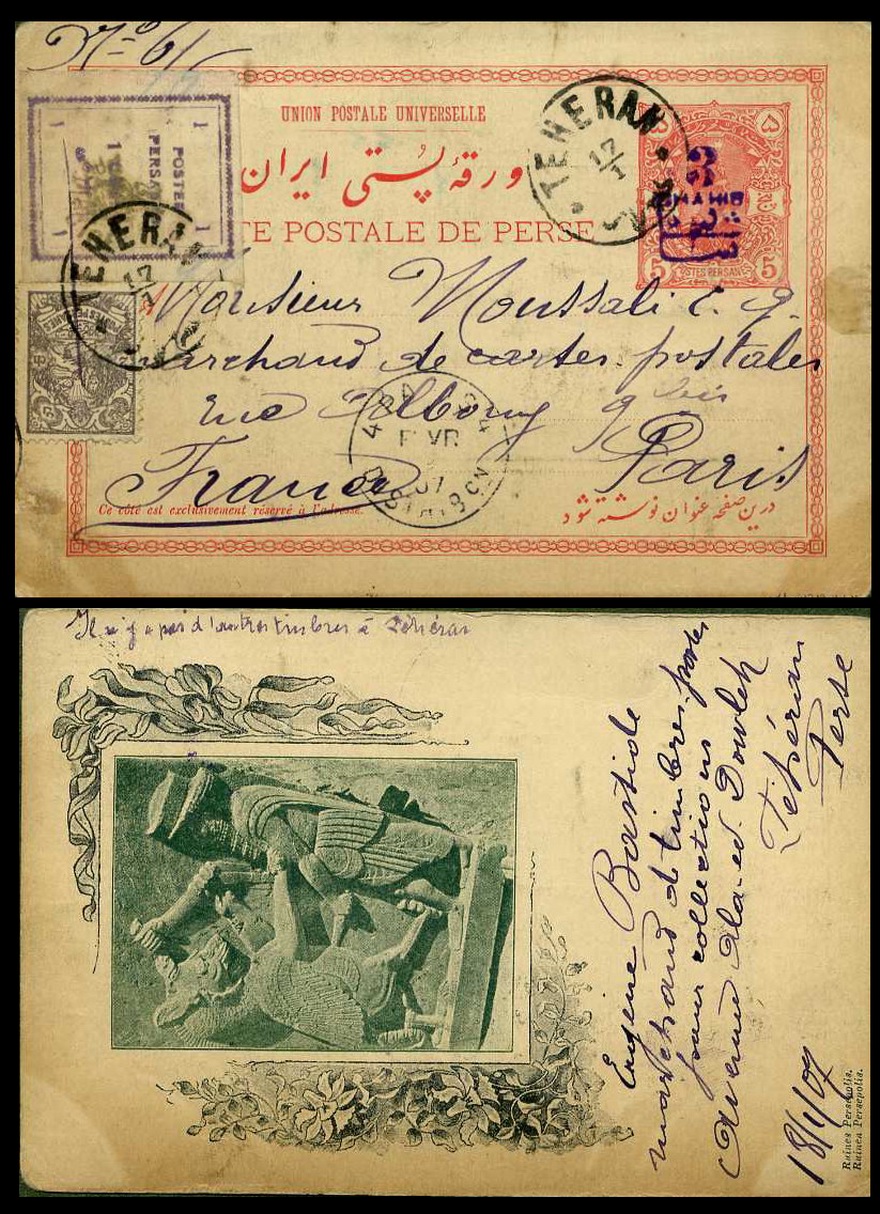 No 61
UNION POSTALE UNIVERSELLE
ورقهٔ پُستی ایران
TE POSTALE DE PERSE
POSTES
PERSA
1
1
1
1
TEHERAN
12
1
TEHERAN
12
1
۵
5
5
POSTES PERSANES
3
CHAHIS
Monsieur Moussali E. g.
marchand de cartes postales
rue 9 bis
Paris
France
FEVR
07
DISTRIBON
Ce côté est exclusivement réservé à l'adresse.
درین صفحه عنوان نوشته شود
Il n'y a pas d'autres timbres à Téhéran
Eugène Bastide
marchand de timbres-postes
pour collections
Avenue Ala-ed-Dowleh
Téhéran
Perse
18/1/07
Ruines Persepolis.
Ruinea Persepolis.